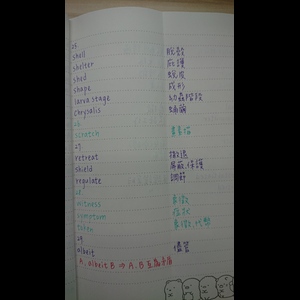 25
shell 脫殼
shelter 庇護
shed 蛻皮
shape 成形
larva stage 幼蟲階段
chrysalis 蛹
26
scratch
27
retreat 撤退
shield 屏蔽,保護
regulate 調節
28
witness 象徵
symptom 症狀
token 象徵,代幣
29
albeit 儘管
A, albeit B ⇒ A, B 互為矛盾